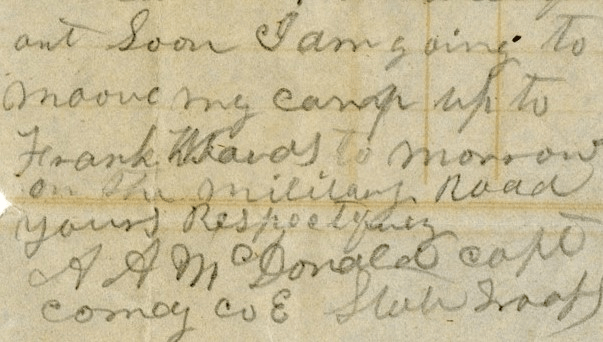 out Soon I am going to
moove my camp up to
Frank Wards to morrow
on the military Road
yours Respectfuly
A A McDonald capt
comdg co E State Troops